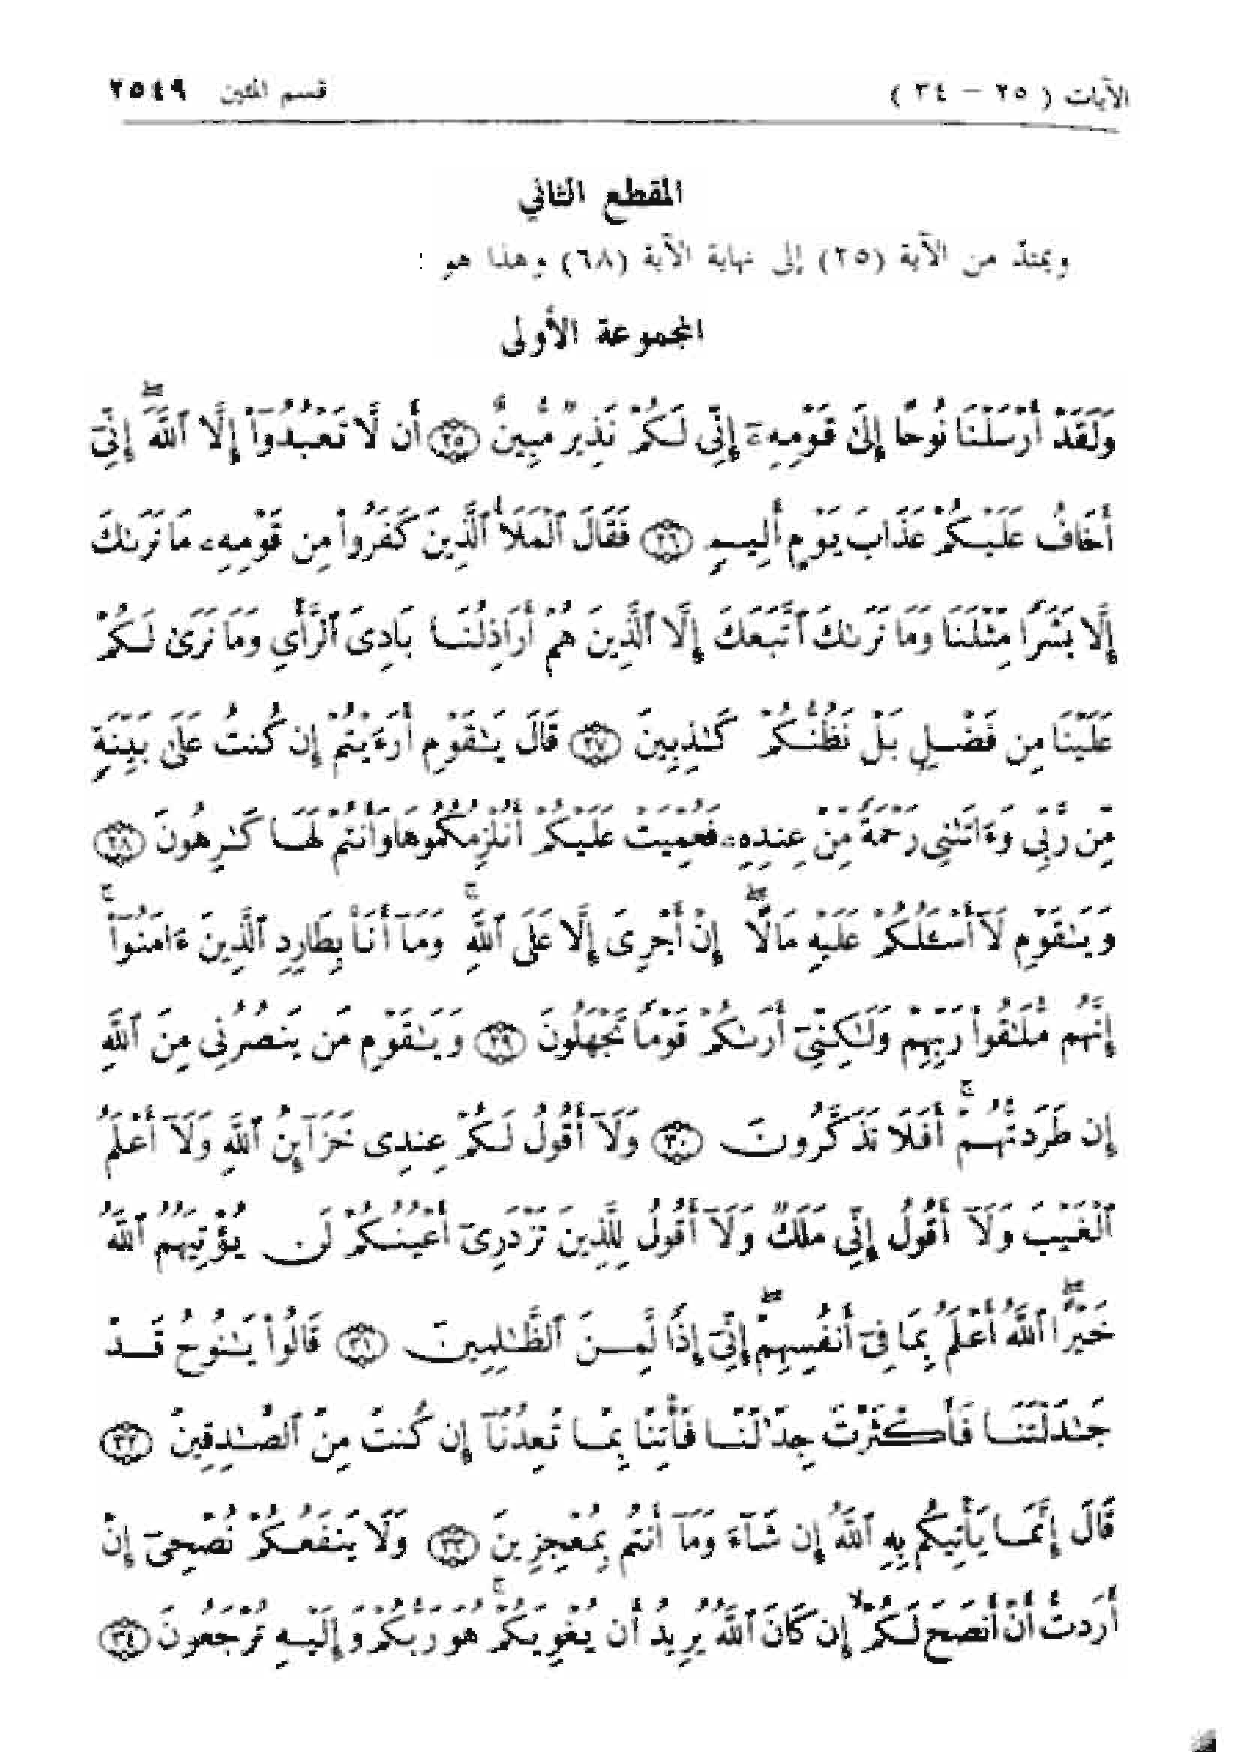 الآيات ( ٢٥ – ٣٤ ) قسم المئين ٢٥٤٩
المقطع الثاني
ويمتدّ من الآية (٢٥) إلى نهاية الآية (٦٨) وهذا هو :
المجموعة الأولى
وَلَقَدْ أَرْسَلْنَا نُوحًا إِلَىٰ قَوْمِهِۦٓ إِنِّى لَكُمْ نَذِيرٌ مُّبِينٌ ﴿٢٥﴾ أَن لَّا تَعْبُدُوٓا۟ إِلَّا ٱللَّهَ ۖ إِنِّىٓ
أَخَافُ عَلَيْكُمْ عَذَابَ يَوْمٍ أَلِيمٍ ﴿٢٦﴾ فَقَالَ ٱلْمَلَأُ ٱلَّذِينَ كَفَرُوا۟ مِن قَوْمِهِۦ مَا نَرَىٰكَ
إِلَّا بَشَرًا مِّثْلَنَا وَمَا نَرَىٰكَ ٱتَّبَعَكَ إِلَّا ٱلَّذِينَ هُمْ أَرَاذِلُنَا بَادِىَ ٱلرَّأْىِ وَمَا نَرَىٰ لَكُمْ
عَلَيْنَا مِن فَضْلٍۭ بَلْ نَظُنُّكُمْ كَـٰذِبِينَ ﴿٢٧﴾ قَالَ يَـٰقَوْمِ أَرَءَيْتُمْ إِن كُنتُ عَلَىٰ بَيِّنَةٍ
مِّن رَّبِّى وَءَاتَىٰنِى رَحْمَةً مِّنْ عِندِهِۦ فَعُمِّيَتْ عَلَيْكُمْ أَنُلْزِمُكُمُوهَا وَأَنتُمْ لَهَا كَـٰرِهُونَ ﴿٢٨﴾
وَيَـٰقَوْمِ لَآ أَسْـَٔلُكُمْ عَلَيْهِ مَالًا ۖ إِنْ أَجْرِىَ إِلَّا عَلَى ٱللَّهِ ۚ وَمَآ أَنَا۠ بِطَارِدِ ٱلَّذِينَ ءَامَنُوٓا۟ ۚ
إِنَّهُم مُّلَـٰقُوا۟ رَبِّهِمْ وَلَـٰكِنِّىٓ أَرَىٰكُمْ قَوْمًا تَجْهَلُونَ ﴿٢٩﴾ وَيَـٰقَوْمِ مَن يَنصُرُنِى مِنَ ٱللَّهِ
إِن طَرَدتُّهُمْ ۚ أَفَلَا تَذَكَّرُونَ ﴿٣٠﴾ وَلَآ أَقُولُ لَكُمْ عِندِى خَزَآئِنُ ٱللَّهِ وَلَآ أَعْلَمُ
ٱلْغَيْبَ وَلَآ أَقُولُ إِنِّى مَلَكٌ وَلَآ أَقُولُ لِلَّذِينَ تَزْدَرِىٓ أَعْيُنُكُمْ لَن يُؤْتِيَهُمُ ٱللَّهُ
خَيْرًا ۖ ٱللَّهُ أَعْلَمُ بِمَا فِىٓ أَنفُسِهِمْ ۖ إِنِّىٓ إِذًا لَّمِنَ ٱلظَّـٰلِمِينَ ﴿٣١﴾ قَالُوا۟ يَـٰنُوحُ قَدْ
جَـٰدَلْتَنَا فَأَكْثَرْتَ جِدَٰلَنَا فَأْتِنَا بِمَا تَعِدُنَآ إِن كُنتَ مِنَ ٱلصَّـٰدِقِينَ ﴿٣٢﴾
قَالَ إِنَّمَا يَأْتِيكُم بِهِ ٱللَّهُ إِن شَآءَ وَمَآ أَنتُم بِمُعْجِزِينَ ﴿٣٣﴾ وَلَا يَنفَعُكُمْ نُصْحِىٓ إِنْ
أَرَدتُّ أَنْ أَنصَحَ لَكُمْ إِن كَانَ ٱللَّهُ يُرِيدُ أَن يُغْوِيَكُمْ ۚ هُوَ رَبُّكُمْ وَإِلَيْهِ تُرْجَعُونَ ﴿٣٤﴾